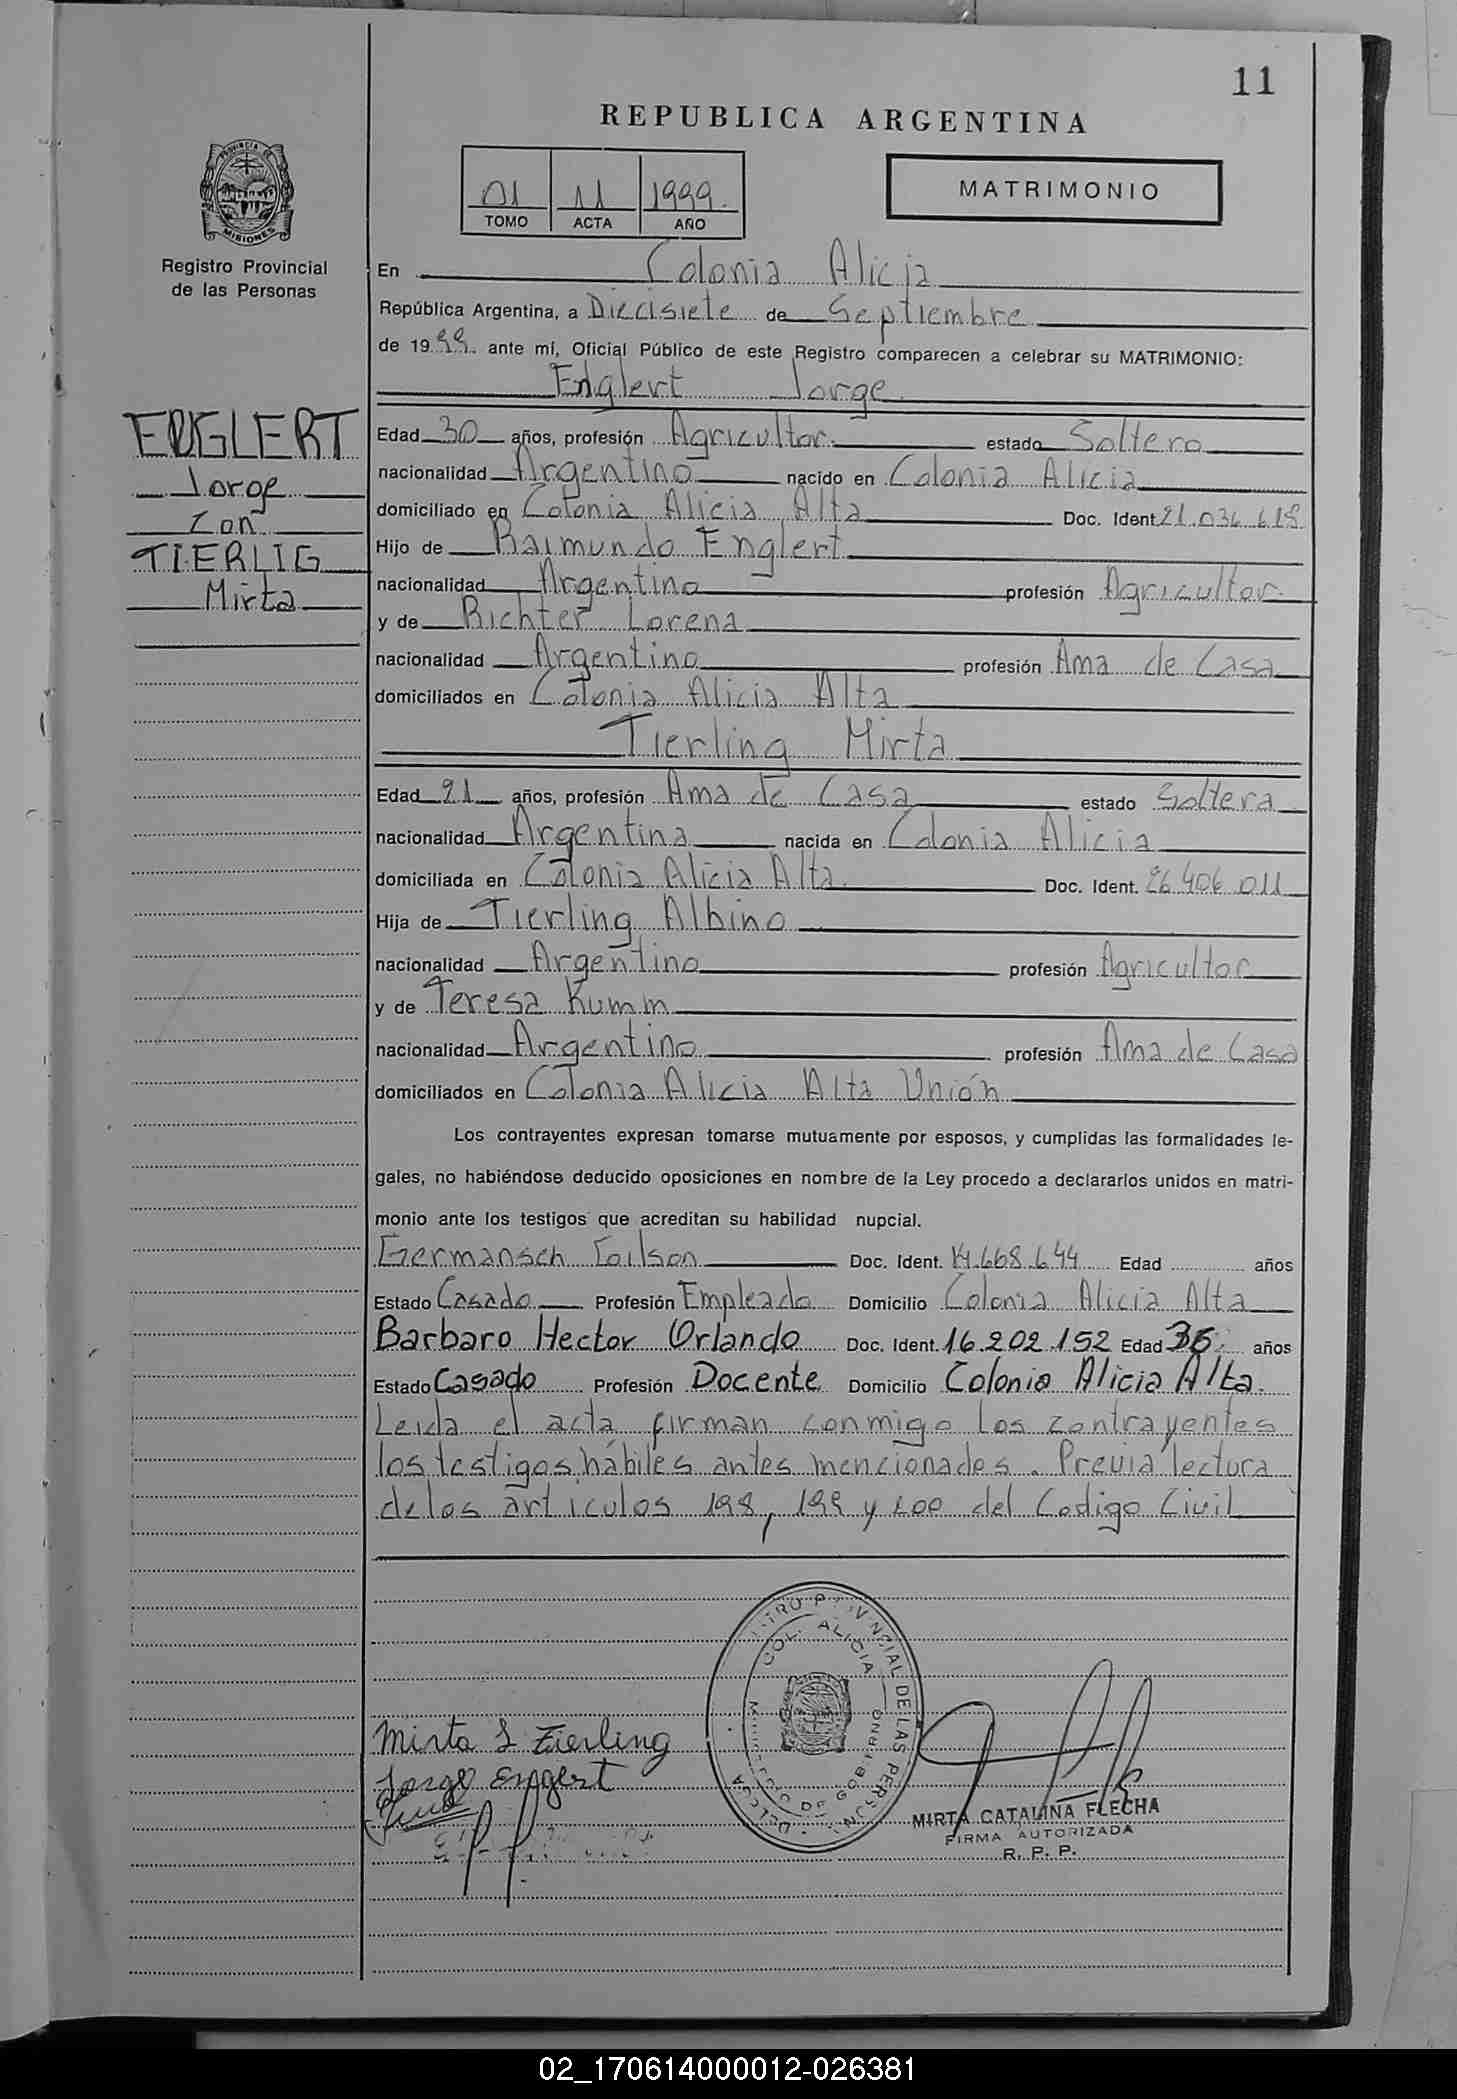 11
REPUBLICA ARGENTINA
PROVINCIA DE
MISIONES
Registro Provincial
de las Personas
01 11 1999
TOMO ACTA AÑO
MATRIMONIO
En Colonia Alicia
República Argentina, a Diecisiete de Septiembre
de 1999 ante mí, Oficial Público de este Registro comparecen a celebrar su MATRIMONIO:
Englert Jorge
ENGLERT
Jorge
Con
TIERLIG
Mirta
Edad 30 años, profesión Agricultor estado Soltero
nacionalidad Argentino nacido en Colonia Alicia
domiciliado en Colonia Alicia Alta Doc. Ident. 21.036.618
Hijo de Raimundo Englert
nacionalidad Argentino profesión Agricultor
y de Richter Lorena
nacionalidad Argentino profesión Ama de Casa
domiciliados en Colonia Alicia Alta
Tierling Mirta
Edad 21 años, profesión Ama de Casa estado Soltera
nacionalidad Argentina nacida en Colonia Alicia
domiciliada en Colonia Alicia Alta Doc. Ident. 26.406.011
Hija de Tierling Albino
nacionalidad Argentino profesión Agricultor
y de Teresa Kumm
nacionalidad Argentino profesión Ama de Casa
domiciliados en Colonia Alicia Alta Unión
Los contrayentes expresan tomarse mutuamente por esposos, y cumplidas las formalidades le-
gales, no habiéndose deducido oposiciones en nombre de la Ley procedo a declararlos unidos en matri-
monio ante los testigos que acreditan su habilidad nupcial.
Germansch Coilson Doc. Ident. 14.668.644 Edad años
Estado Casado Profesión Empleado Domicilio Colonia Alicia Alta
Barbaro Hector Orlando Doc. Ident. 16.202.152 Edad 36 años
Estado Casado Profesión Docente Domicilio Colonia Alicia Alta.
Leida el acta firman conmigo los contrayentes
los testigos hábiles antes mencionados. Previa lectura
de los articulos 198, 199 y 200 del Codigo Civil
COL. ALICIA
PROVINCIAL DE LAS PERSON
MINISTERIO DE GOBIERNO
Mirta S Zierling
Jorge Engert
MIRTA CATALINA FLECHA
FIRMA AUTORIZADA
R. P. P.
02_170614000012-026381